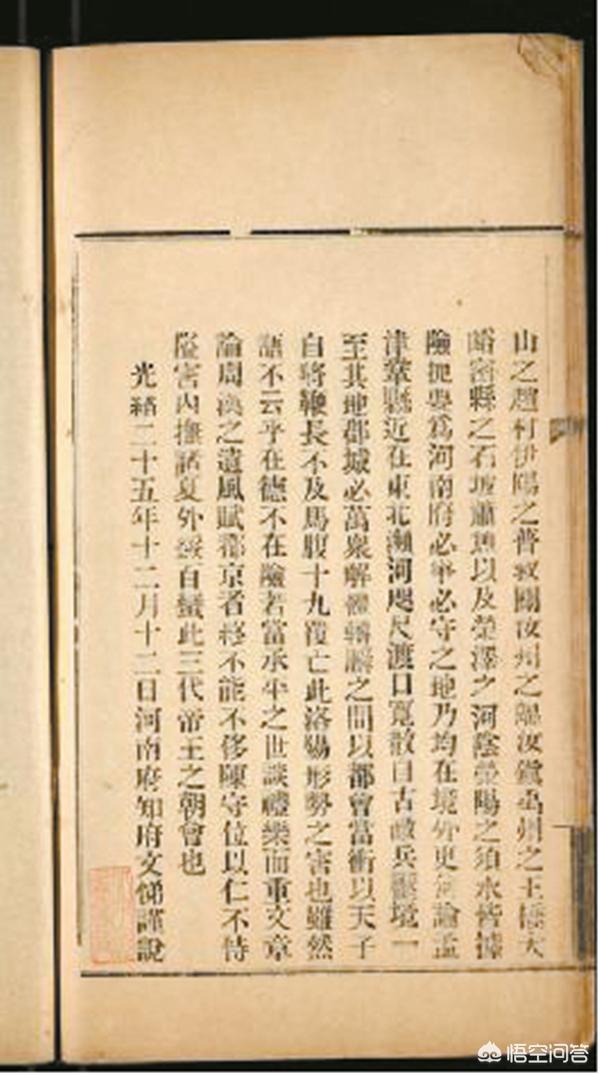 山之趙村伊陽之普救關汝州之臨汝鎮禹州之
峪密縣之石坡蕭寨以及滎澤之河陰滎陽之須水皆據
險扼要為河南府必爭必守之地乃均在境外更何論孟
津鞏縣近在東北瀕河咫尺渡口寬散自古敵兵壓境一
至其地郡城必萬衆解體轔轔之間以都會當衝以天子
自將鞭長不及馬腹十九覆亡此洛陽形勢之害也雖然
語不云乎在德不在險若當承平之世談禮樂而重文章
論周漢之遺風賦都京者終不能不侈陳守位以仁不恃
隘害內撫諸夏外綏百蠻此三代帝王之朝會也
光緒二十五年十二月十二日河南府知府文悌謹說
悟空问答